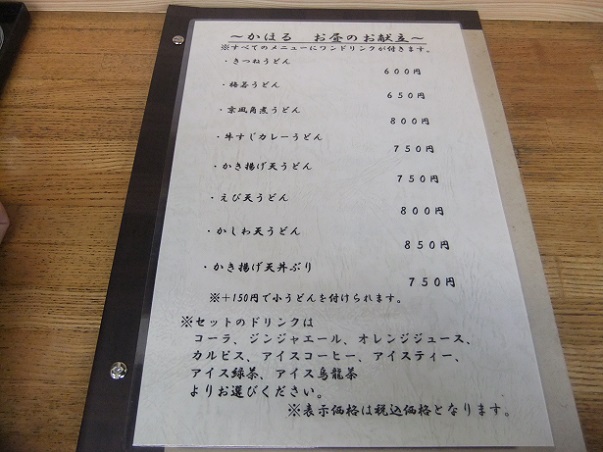 ～かほる　お昼のお献立～
※すべてのメニューにワンドリンクが付きます。
・きつねうどん
６００円
・梅若うどん
６５０円
・京風角煮うどん
８００円
・牛すじカレーうどん
７５０円
・かき揚げ天うどん
７５０円
・えび天うどん
８００円
・かしわ天うどん
８５０円
・かき揚げ天丼ぶり
７５０円
※＋150円で小うどんを付けられます。
※セットのドリンクは
コーラ、ジンジャエール、オレンジジュース、
カルピス、アイスコーヒー、アイスティー、
アイス緑茶、アイス烏龍茶
よりお選びください。
※表示価格は税込価格となります。